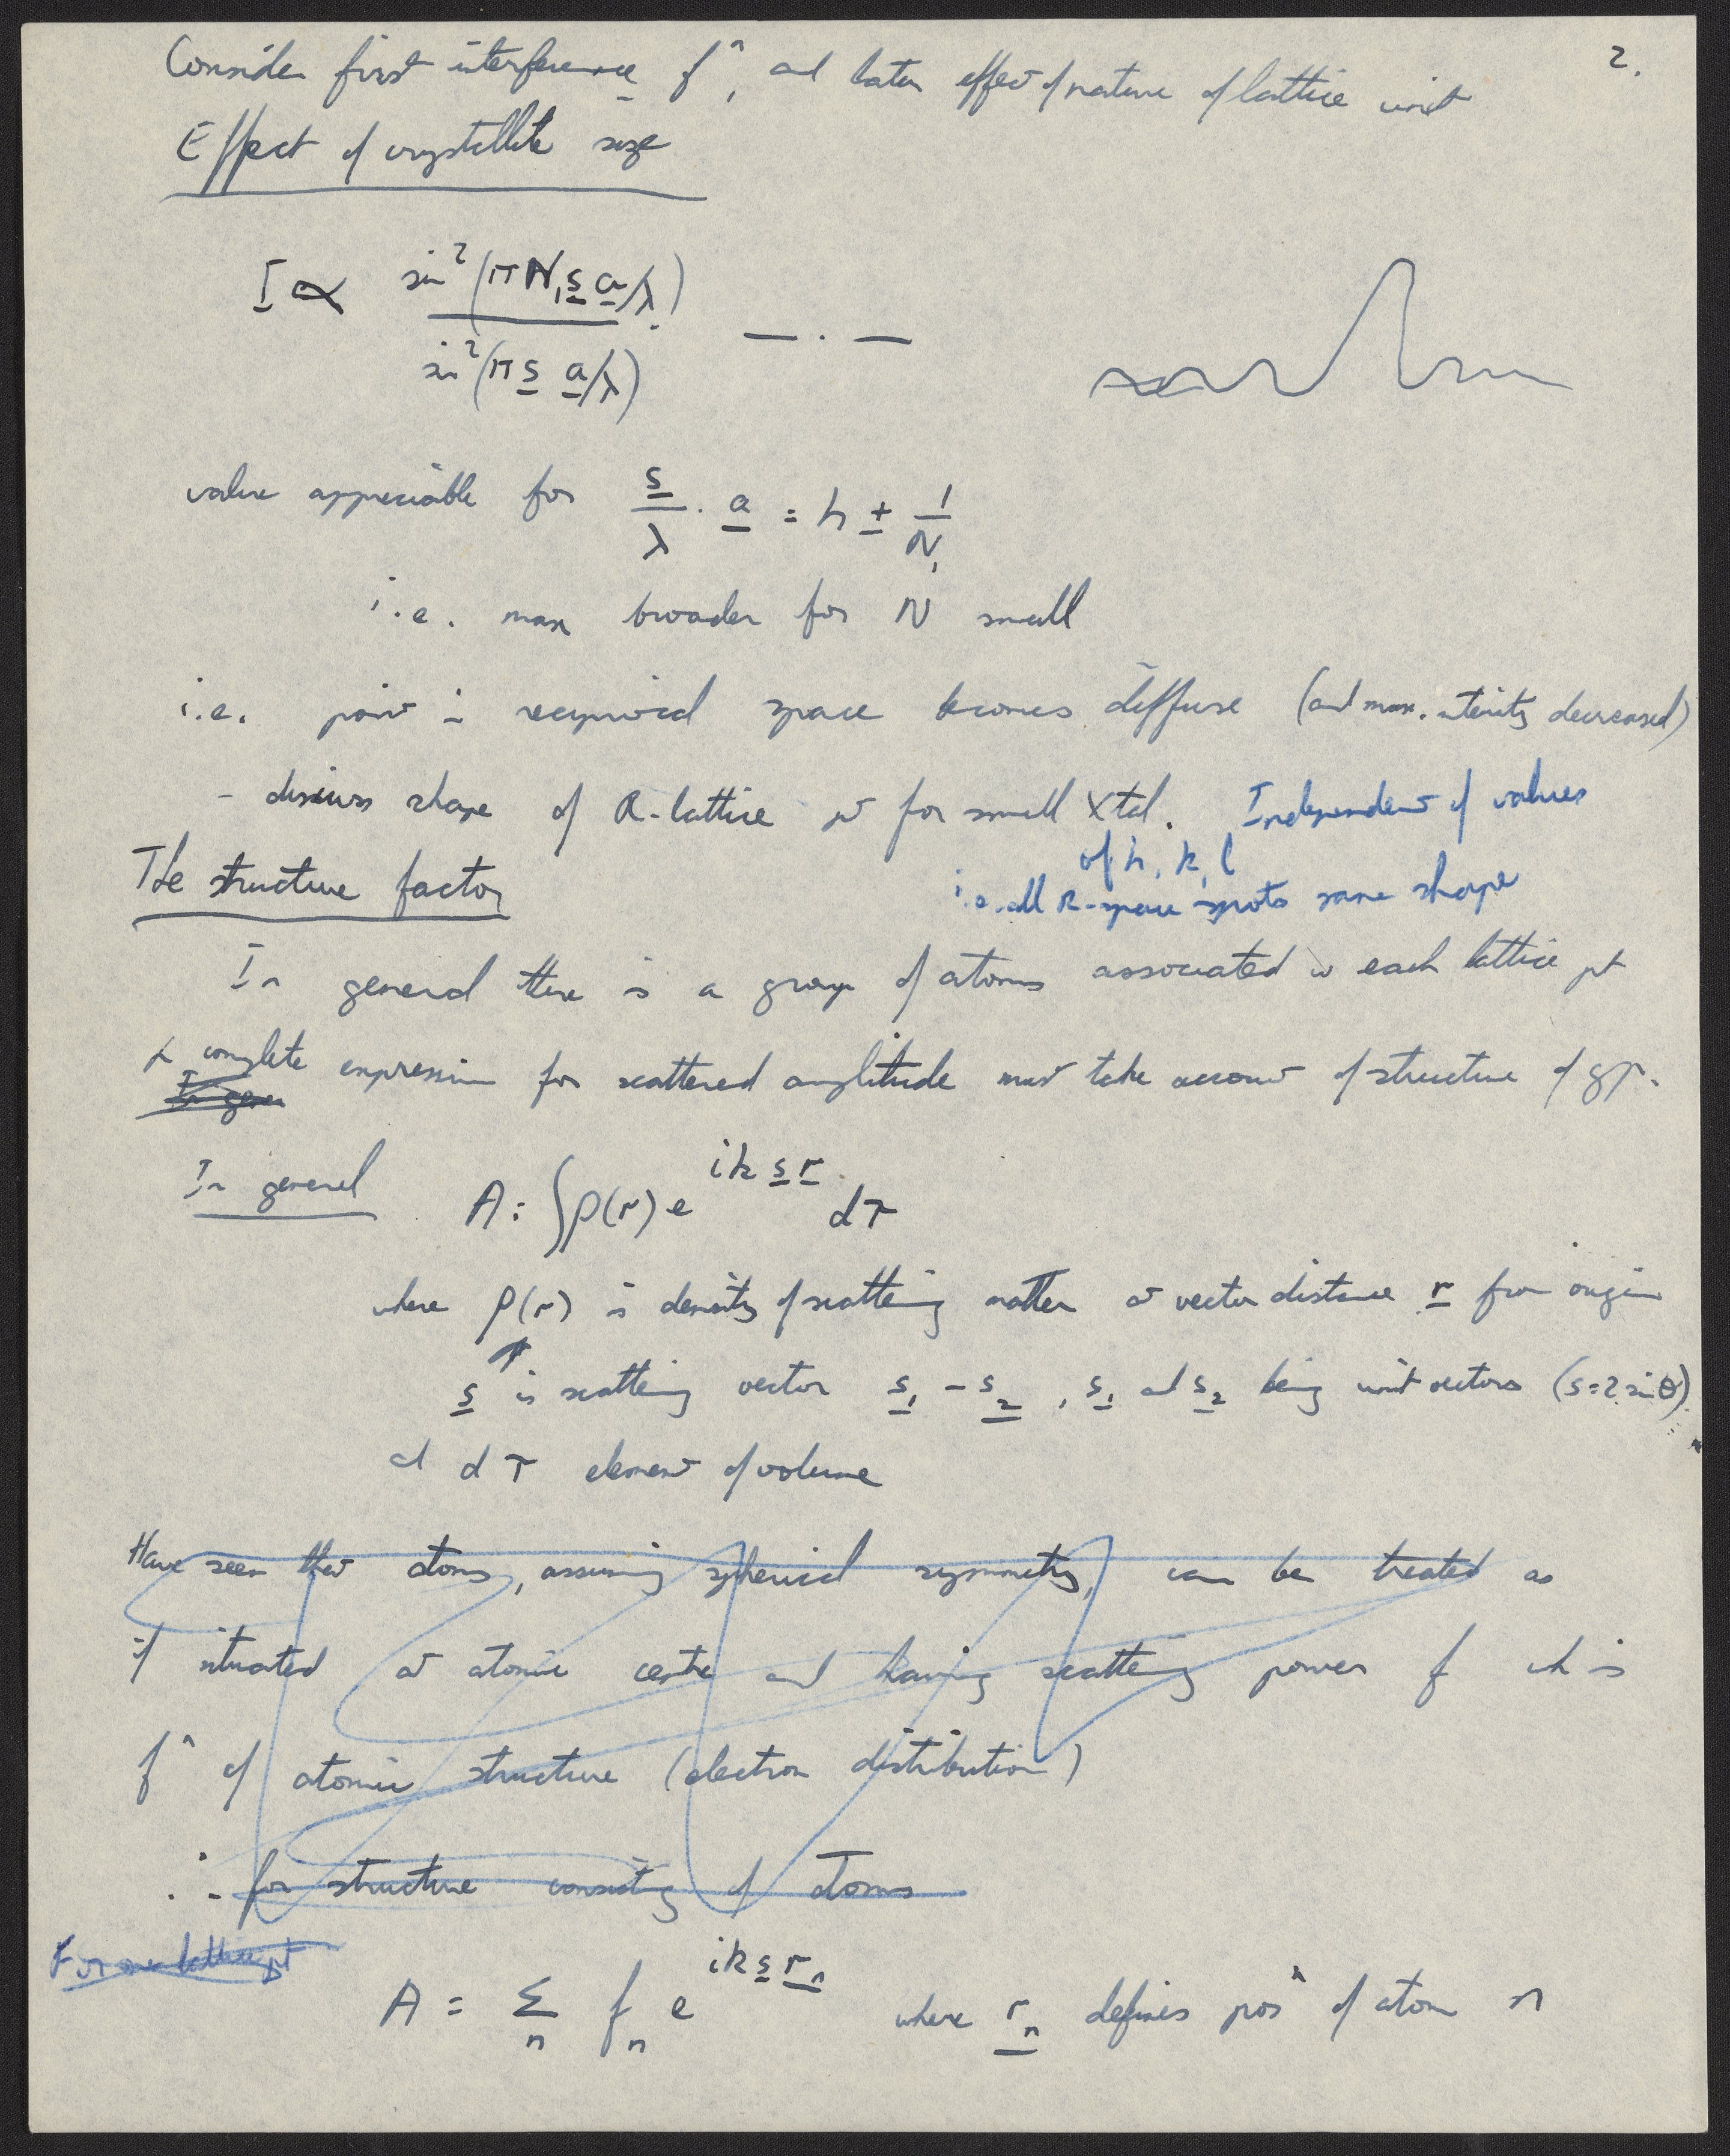 2.
Consider first interference fⁿ, and later effect of nature of lattice unit
Effect of crystallite size
I ∝ sin²(πN₁s a/λ) / sin²(πs a/λ) — . —
value appreciable for s/λ . a = h ± 1/N₁
i.e. max broader for N small
i.e. point in reciprocal space becomes diffuse (and max. intensity decreased)
- discuss shape of R-lattice pt for small Xtal. Independent of values
of h, k, l
i.e. all R-space spots same shape
The structure factor
In general there is a group of atoms associated w each lattice pt
& complete expression for scattered amplitude must take account of structure of gp.
In gener
In general A = ∫ρ(r) e^{ik s r} dτ
where ρ(r) is density of scattering matter at vector distance r from origin
s is scattering vector s₁ - s₂, s₁ and s₂ being unit vectors (s = 2 sin θ)
and dτ element of volume
Have seen that atoms, assuming spherical symmetry, can be treated as
if situated at atomic centre and having scattering power f wh is
fⁿ of atomic structure (electron distribution)
∴ for structure consisting of atoms
For one lattice pt
A = Σₙ fₙ e^{ik s rₙ} where rₙ defines posⁿ of atom n